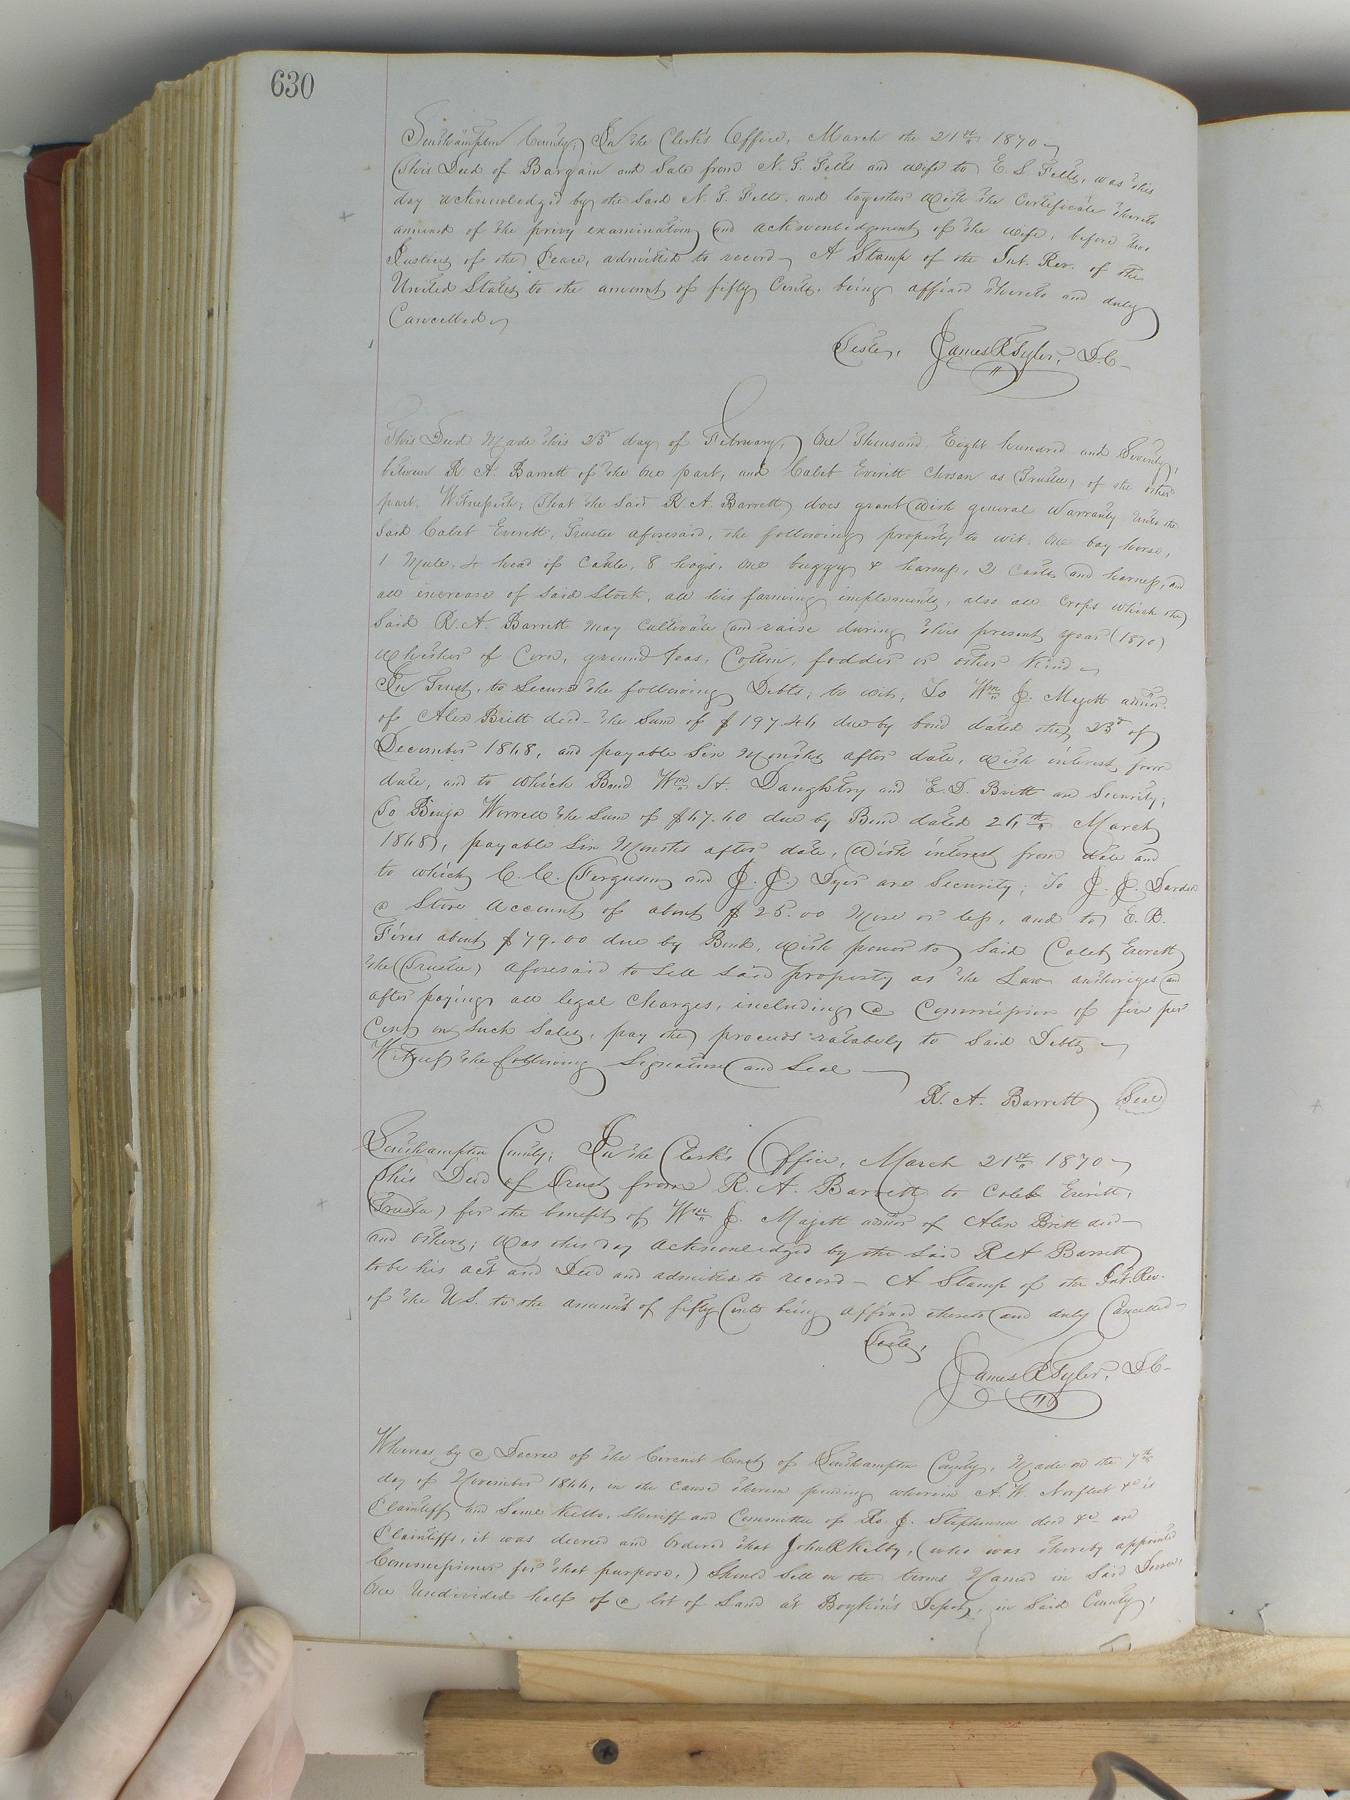 630
Southampton County, In the Clerk's Office, March the 21st 1870
This Deed of Bargain and Sale from N. T. Felts and wife to E. S. Felts, was this
day acknowledged by the said N. T. Felts, and together with the Certificate thereto
annexed of the privy examination and acknowledgment of the wife, before two
Justices of the Peace, admitted to record. A Stamp of the Int. Rev. of the
United States to the amount of fifty Cents, being affixed thereto and duly
Cancelled
Teste, James R Tyler, D.C.
This Deed Made this 23d day of February, One Thousand Eight hundred and Seventy,
between R. A. Barrett of the one part, and Caleb Everitt chosen as Trustee, of the other
part. Witnesseth; That the Said R A. Barrett does grant with general Warranty Unto the
Said Caleb Everett, Trustee aforesaid, the following property to wit. One bay horse,
1 Mule, 4 head of Cattle, 8 hogs, One buggy & harness, 2 Carts and harness, and
all increase of Said Stock, all his farming implements, also all Crops which the
Said R. A. Barrett may Cultivate and raise during this present year (1870)
Whether of Corn, ground Peas, Cotton, fodder or other kind
In Trust, to Secure the following Debts, to wit, To Wm J. Majett admr.
of Alex Britt decd the Sum of $ 197.44 due by bond dated the 23d of
December 1868, and payable Six Months after date, with interest from
date, and to which Bond Wm H. Daughtry and E. D. Britt are Security;
To Benja Worrell the Sum of $67.60 due by Bond dated 26th March
1868, payable Six Months after date, with interest from date and
to which C. C. Ferguson and J. J. Dyer are Security; To J. J. Darden
a Store Account of about $ 25.00 More or less, and to E. B.
about $79.00 due by Bond, with power to Said Caleb Everett
the Trustee aforesaid to Sell Said property as the Law authorizes and
after paying all legal Charges, including a Commission of five per
Cent on Such Sales, pay the proceeds ratably to Said Debts
Witness the following Signature and Seal
R. A. Barrett Seal
Southampton County; In the Clerk's Office, March 21st 1870
This Deed of Trust from R. A. Barrett to Caleb Everitt,
Trustee, for the benefit of Wm J. Majett admr of Alex Britt decd
and others; Was this day acknowledged by the Said R A Barrett
to be his act and Deed and admitted to record A Stamp of the Int. Rev.
of the U.S. to the amount of fifty Cents being affixed thereto and duly Cancelled
Teste,
James R Tyler, D.C.
Whereas by a Decree of the Circuit Court of Southampton County, Made on the 7th
day of November 1866, in the cause therein pending wherein A. W. Norfleet &c is
Plaintiff and Saml Kello, Sheriff and Committee of Ro. J. Stephenson decd &c are
Plaintiffs, it was decreed and Ordered that John R Kilby, (who was thereby appointed
Commissioner for that purpose,) Should Sell on the terms Named in Said Decree,
One Undivided half of a lot of Land at Boykin's Depot, in Said County,